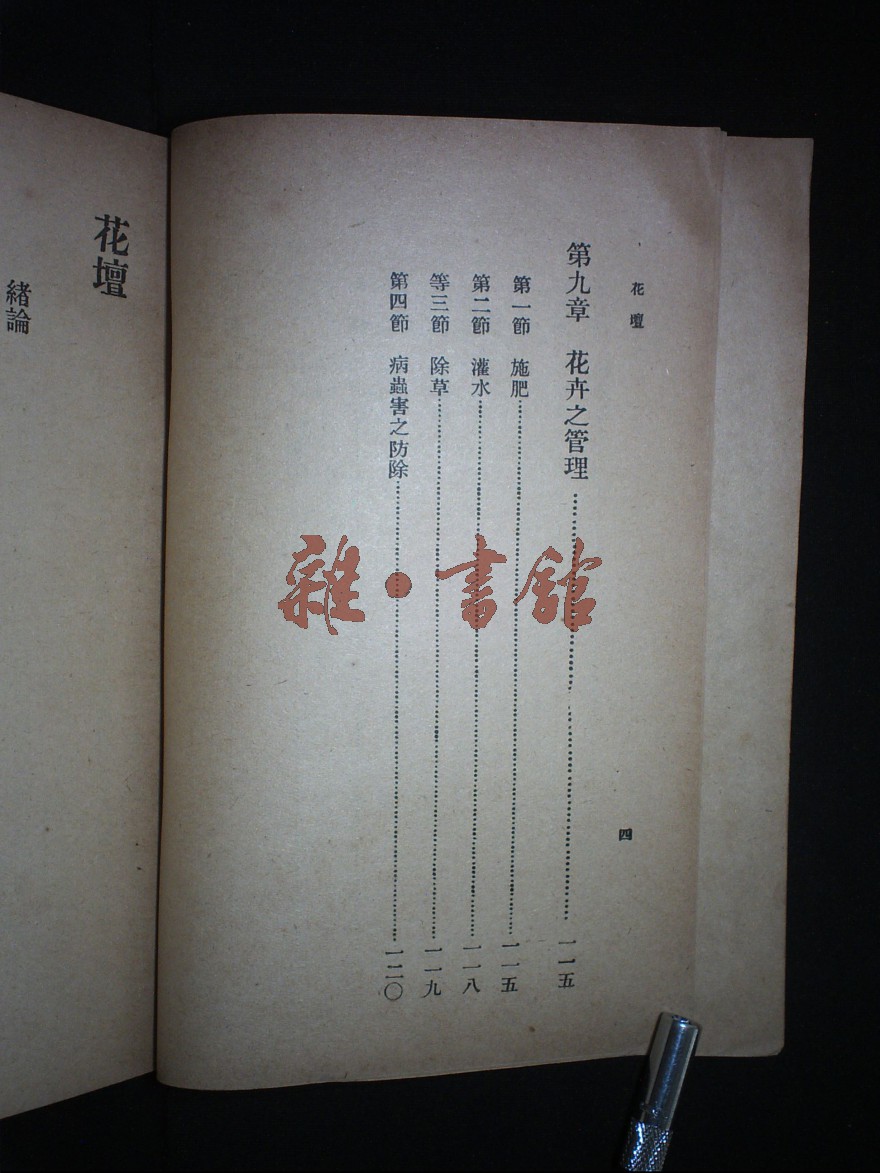 花壇
四
第九章 花卉之管理……一一五
第一節 施肥……一一五
第二節 灌水……一一八
等三節 除草……一一九
第四節 病蟲害之防除……一二〇
花壇
緒論
雜·書館